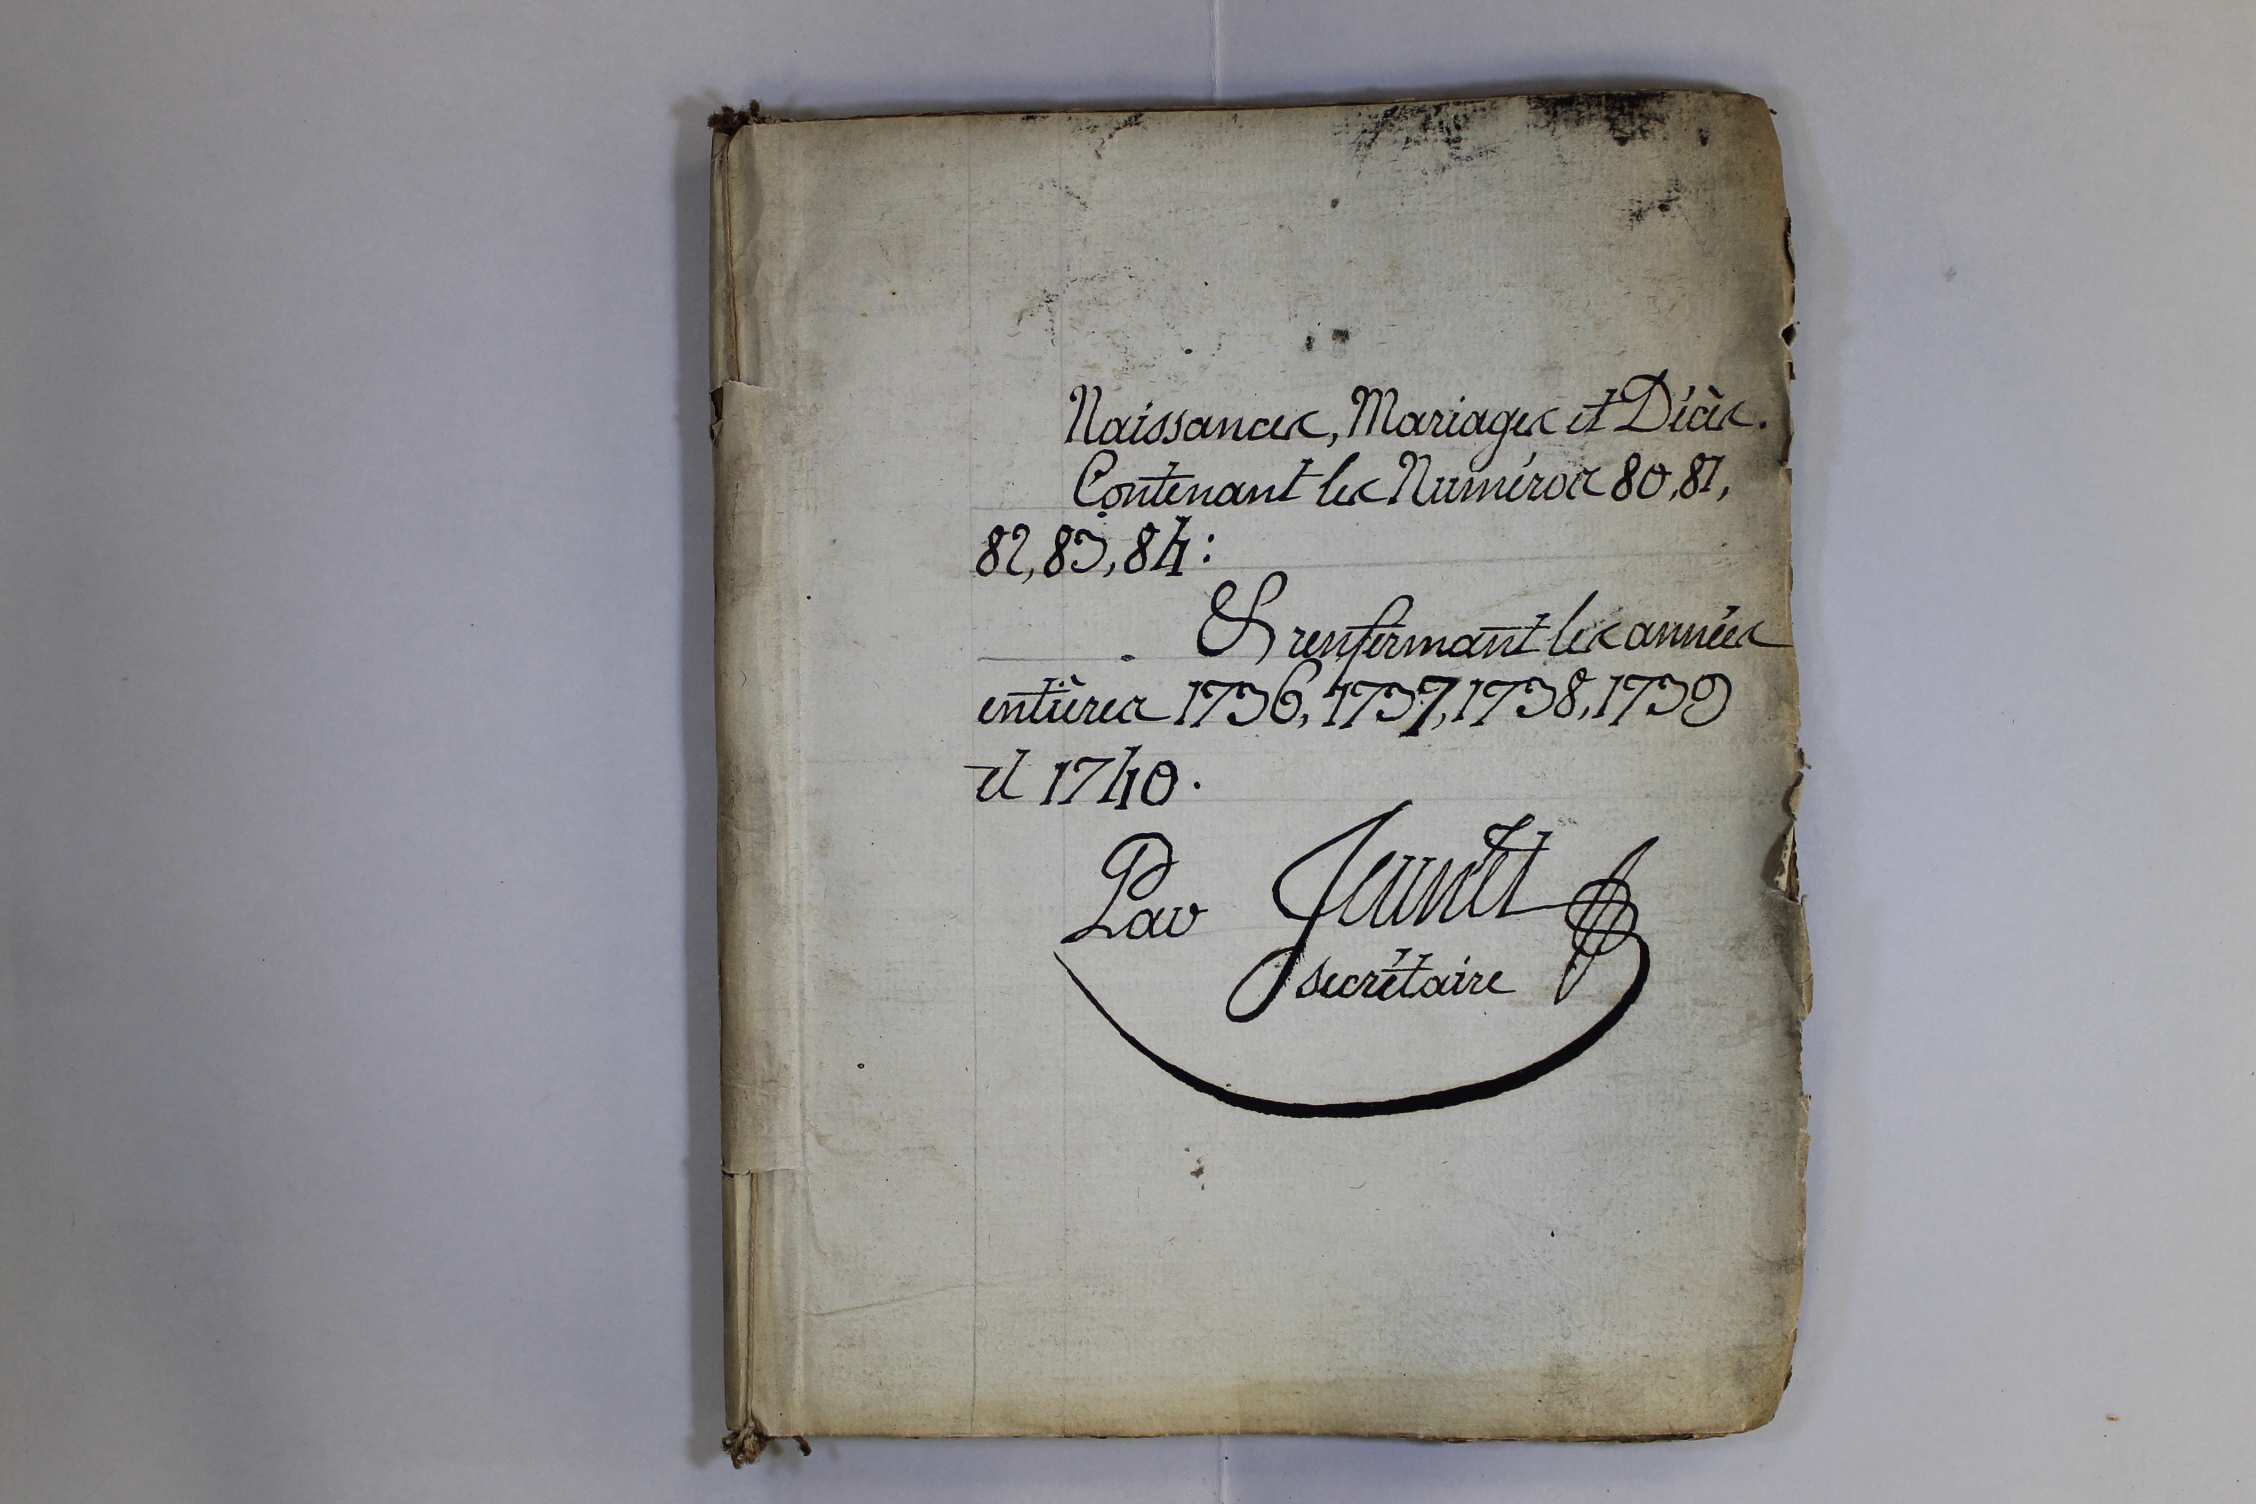 Naissances, Mariages et Décès.
Contenant les Numéros 80, 81,
82, 83, 84:
Et renfermant les années
entières 1736, 1737, 1738, 1739
et 1740.
Par
secrétaire